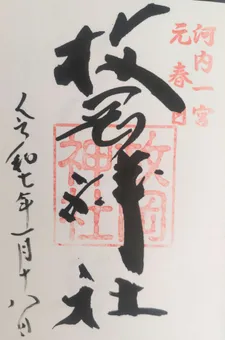 河内一宮
元春日
枚岡神社
枚岡
神社
令和七年一月十八日